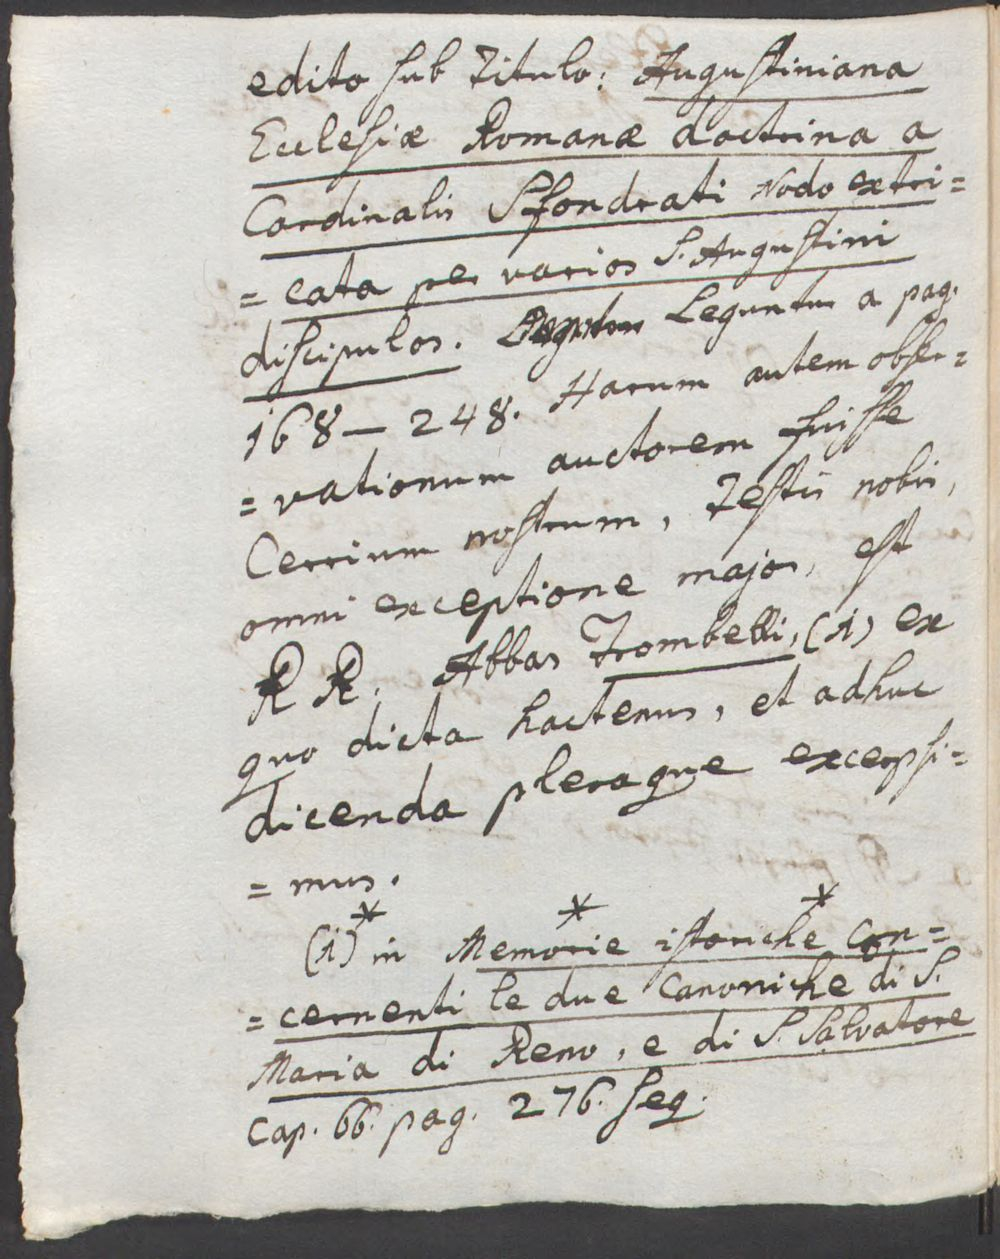 edito sub Titulo: Augustiniana
Ecclesiæ Romanæ doctrina a
Cardinalis Sfondrati Nodo extri=
= cata per varios S. Augustini
discipulos. Leguntur a pag.
168 — 248. Harum autem obser=
= vationum auctorem fuisse
Cerrium nostrum, Testis nobis,
omni exceptione major, est
R R. Abbas Trombelli, (1) ex
quo dicta hactenus, et adhuc
dicenda pleraque excerpsi=
= mus.
* * *
(1) in Memorie istoriche con=
= cernenti le due Canoniche di S.
Maria di Reno, e di S. Salvatore
cap. 66. pag. 276. seq.